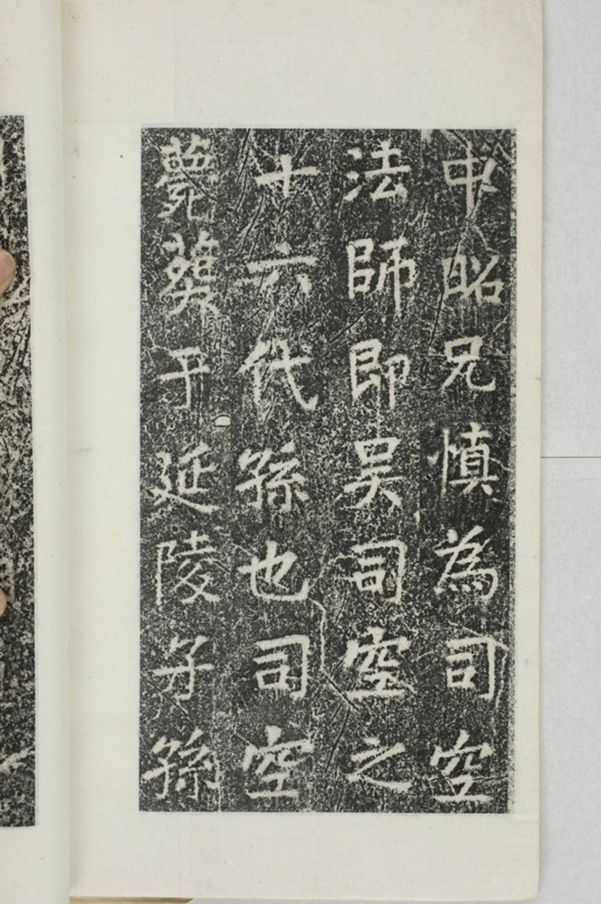 中昭兄慎為司空
法師即吴司空之
十六代孫也司空
薨葬于延陵子孫